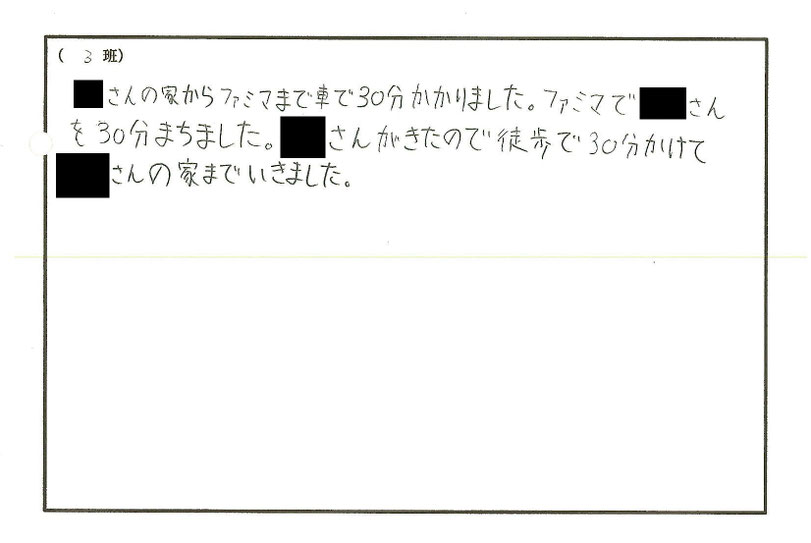 ( 3 班)
さんの家からファミマまで車で30分かかりました。ファミマでさん
を30分まちました。さんがきたので徒歩で30分かけて
さんの家までいきました。